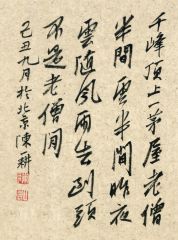 千峰頂上一茅屋老僧
半間雲半間昨夜
雲隨風雨去到頭
不是老僧閒
己丑九月於北京陳耕